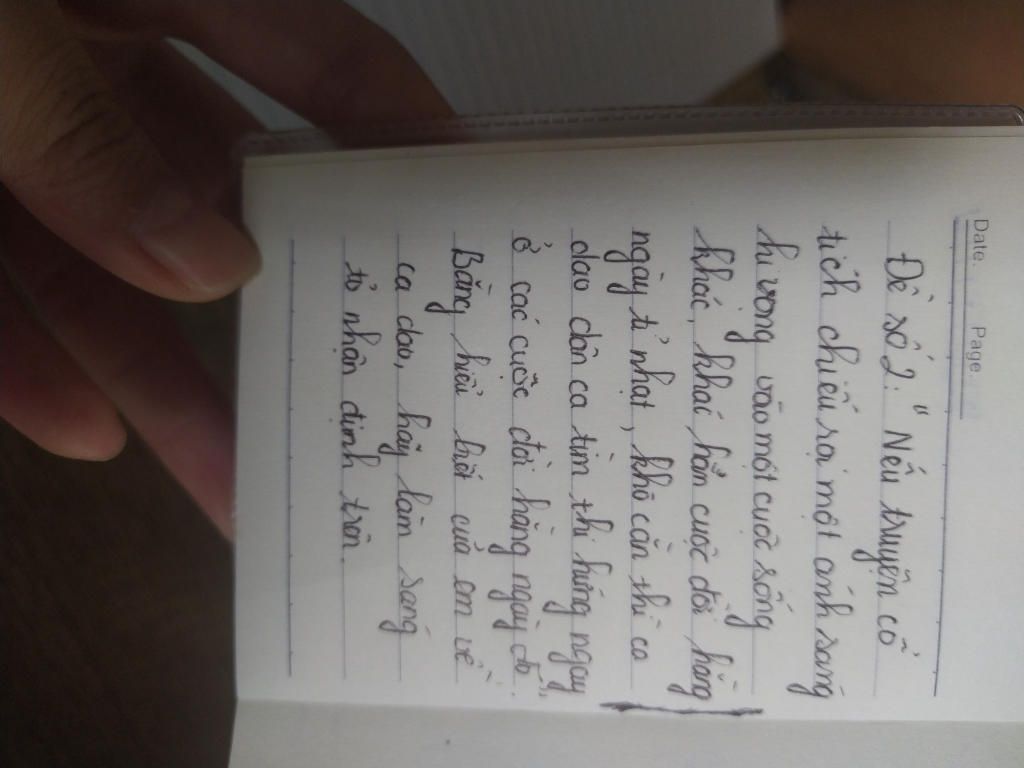 Date. Page.
Đề số 2: " Nếu truyện cổ
tích chiếu rọi một ánh sáng
hi vọng vào một cuộc sống
khác, khác hẳn cuộc đời hằng
ngày tẻ nhạt, khô cằn thì ca
dao dân ca tìm thi hứng ngay
ở các cuộc đời hằng ngày đó".
Bằng hiểu biết của em về
ca dao, hãy làm sáng
tỏ nhận định trên.